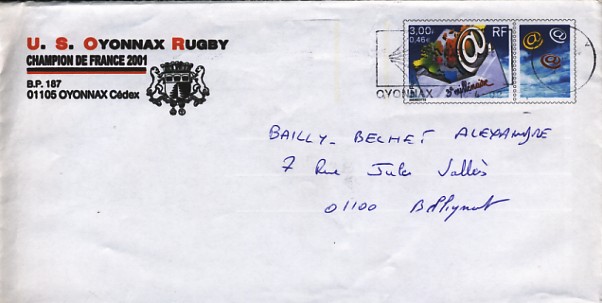 U. S. OYONNAX RUGBY
CHAMPION DE FRANCE 2001
B.P. 187
01105 OYONNAX Cédex
3,00F RF
0,46€
3e millénaire
OYONNAX
BAILLY-BECHET ALEXANDRE
7 Rue Jules Vallès
01100